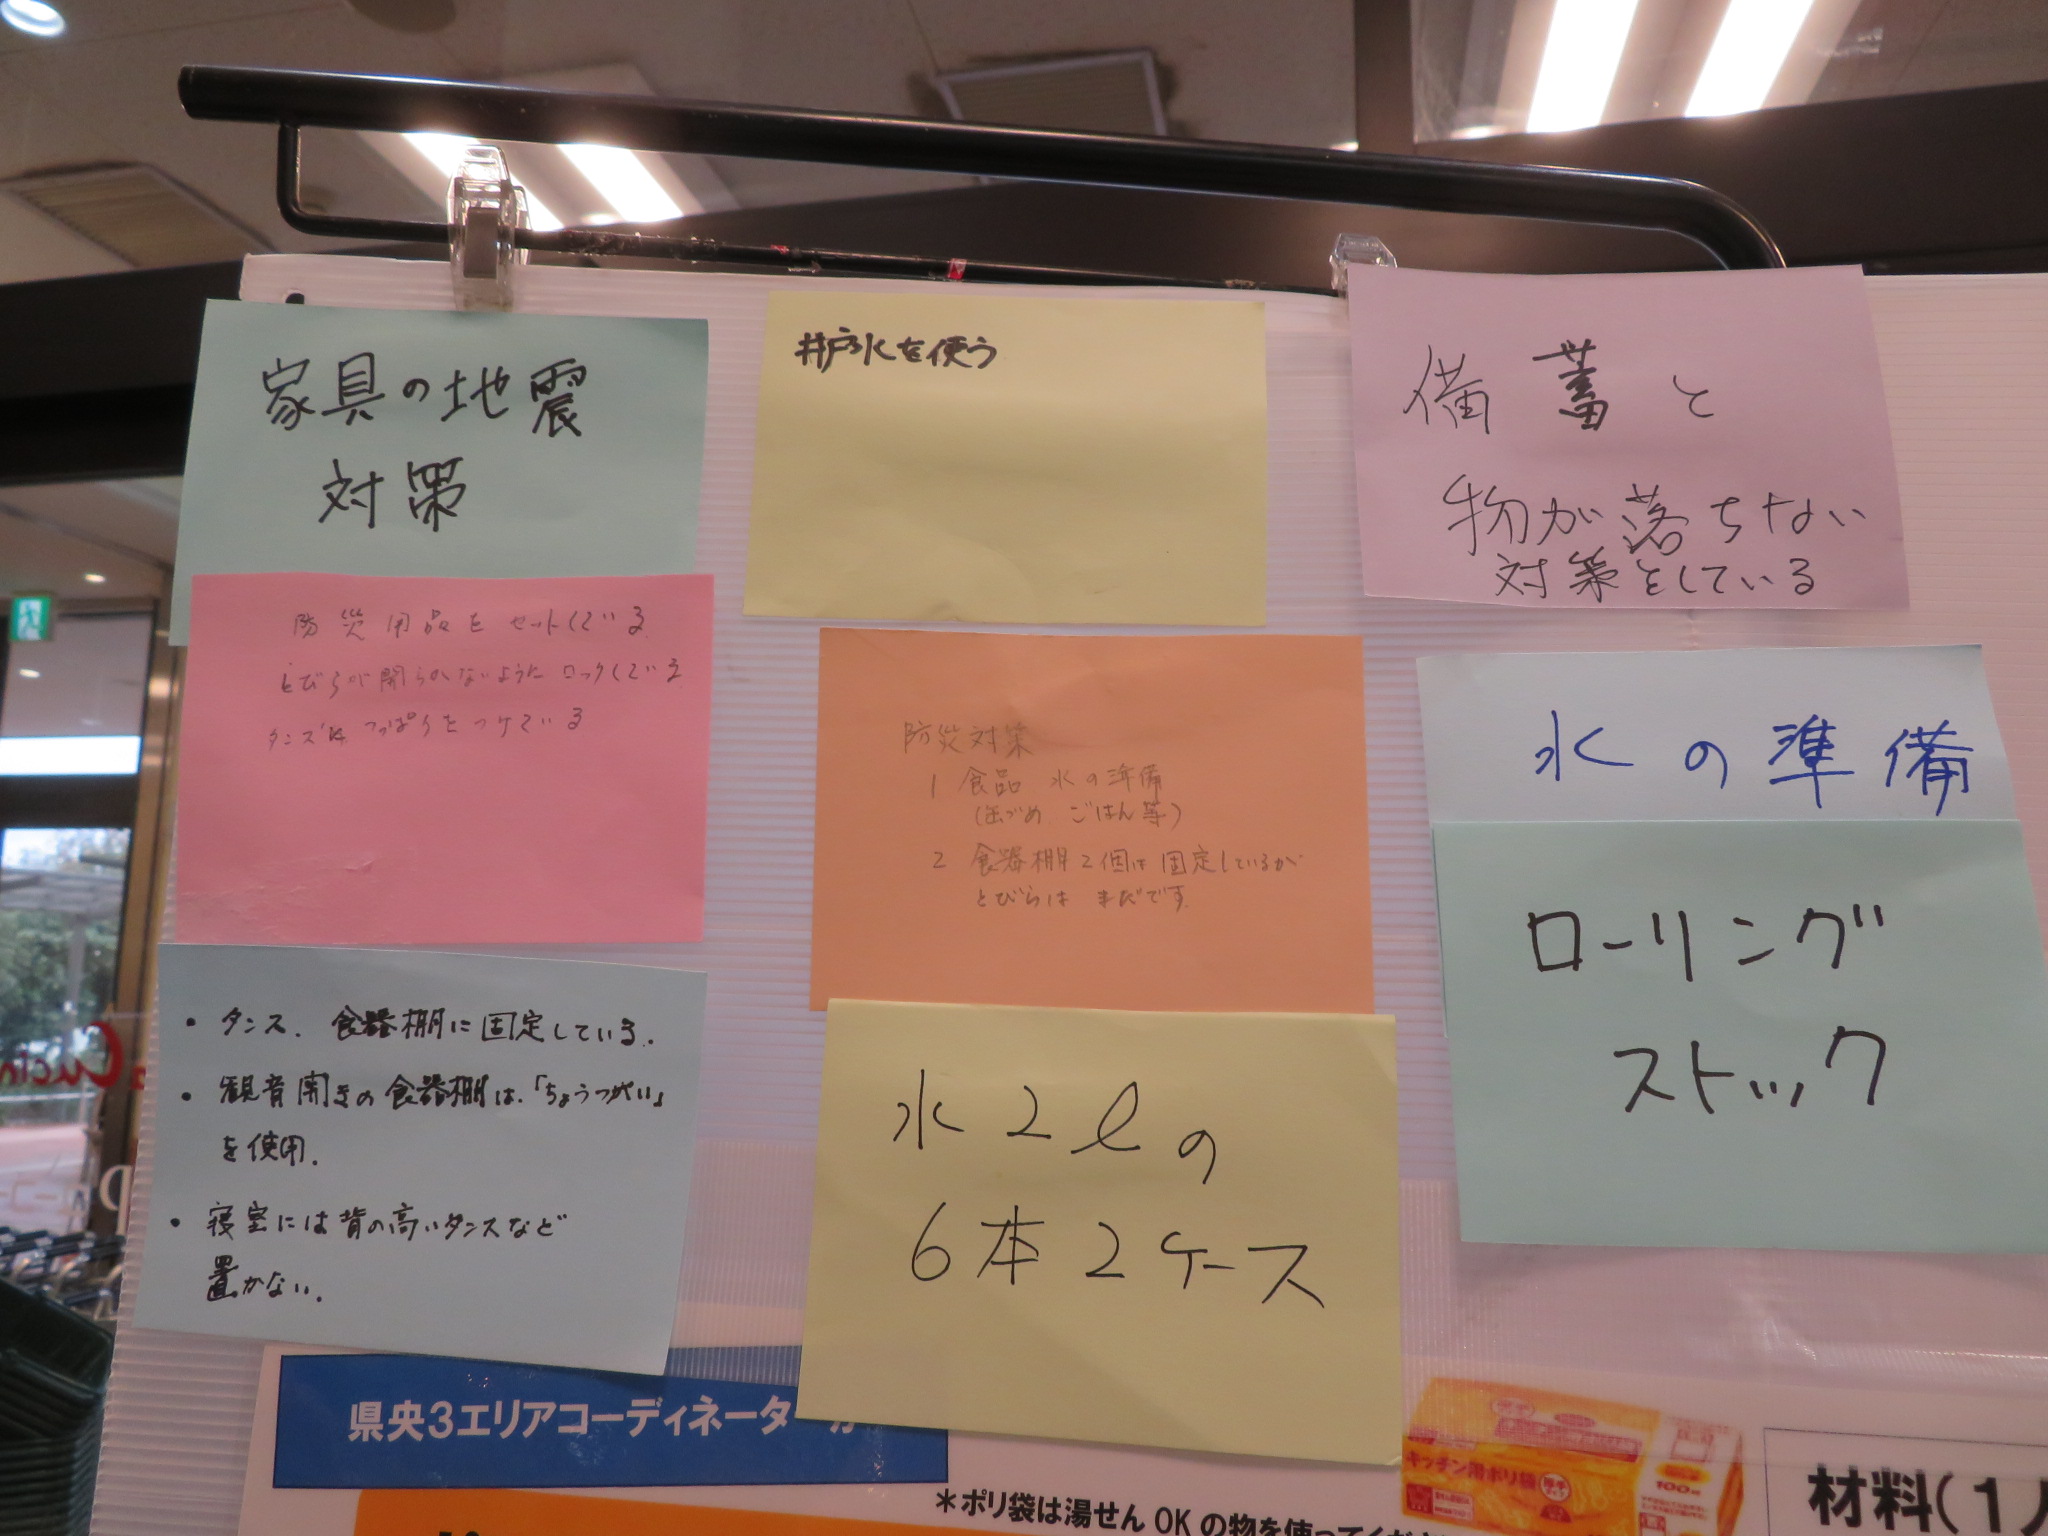 家具の地震
対策
防災用品をセットしている
とびらが開らかないようにロックしている
タンスは、つっぱりをつけている
・タンス、食器棚に固定している。
・観音開きの食器棚は、「ちょうつがい」
を使用。
・寝室には背の高いタンスなど
置かない。
井戸水を使う
防災対策
1 食品 水の準備
(缶づめ ごはん等)
2 食器棚2個は固定しているが
とびらは まだです。
水2ℓの
6本2ケース
備蓄と
物が落ちない
対策をしている
水の準備
ローリング
ストック
県央3エリアコーディネーター
＊ポリ袋は湯せんOKの物を使ってくだ
キッチン用ポリ袋
100枚
材料(1人